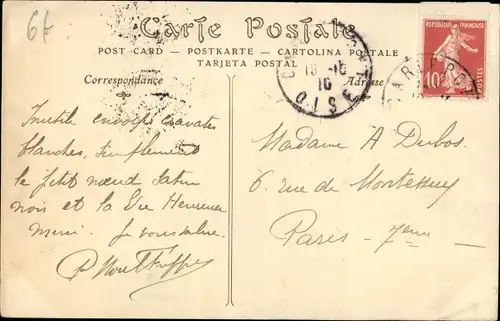 6f
Carte Postale
POST CARD — POSTKARTE — CARTOLINA POSTALE
TARJETA POSTAL
Correspondance
Adresse
REPUBLIQUE FRANÇAISE
10c
POSTES
OISE
Inutile envoyer cravates
blanches, simplement
le petit nœud satin
noir et la Vie Heureuse
Merci. Je vous salue.
Madame A Dubos.
6 rue de Montessuy
Paris – 7eme